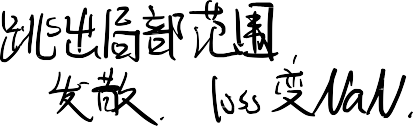 跳出局部范围,
发散. loss变NaN.